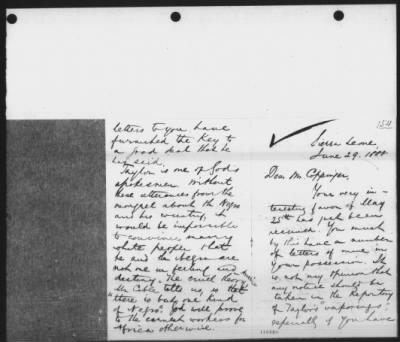 letters to you have
furnished the key to
a good deal that he
has said.
Taylor is one of God's
spokesmen. Without
these utterances from the
mongrel about the Negro
and his country, it
would be impossible
to convince many
white people that
he and the Negro are
not one in feeling and
destiny. The cruel theory
Mr Cable tells us is that
"there is but one kind
of Negro." will prove
to the earnest workers for
Africa otherwise.
154
Sierra Leone,
June 29, 188
Dear Mr Coppinger,
Your very in-
teresting favor of May
25th has just been
received. You must
by this have a number
of letters of mine in
your possession. It
is not my opinion that
any notice should be
taken in the Repository
of Taylor's "vaporings"
especially if you have